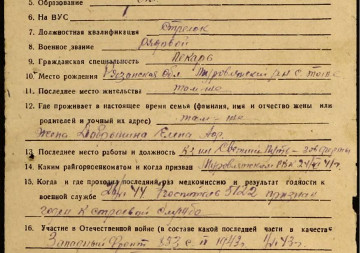 5. Образование
6. На ВУС
7. Должностная квалификация Стрелок
8. Военное звание рядовой
9. Гражданская специальность Пекарь
10. Место рождения Рязанская обл. р-н с.
11. Последнее место жительства там-же
12. Где проживает в настоящее время семья (фамилия, имя и отчество жены или
родителей и точный их адрес) там-же
Жена Елена
13. Последнее место работы и должность К-з им
14. Каким райгорвоенкоматом и когда призван РВК
15. Когда и где проходил последний раз медкомиссию и результат годности к
военной службе 44 признан
годен к строевой службе
16. Участие в Отечественной войне (в составе какой последней части и в качестве
Западный Фронт